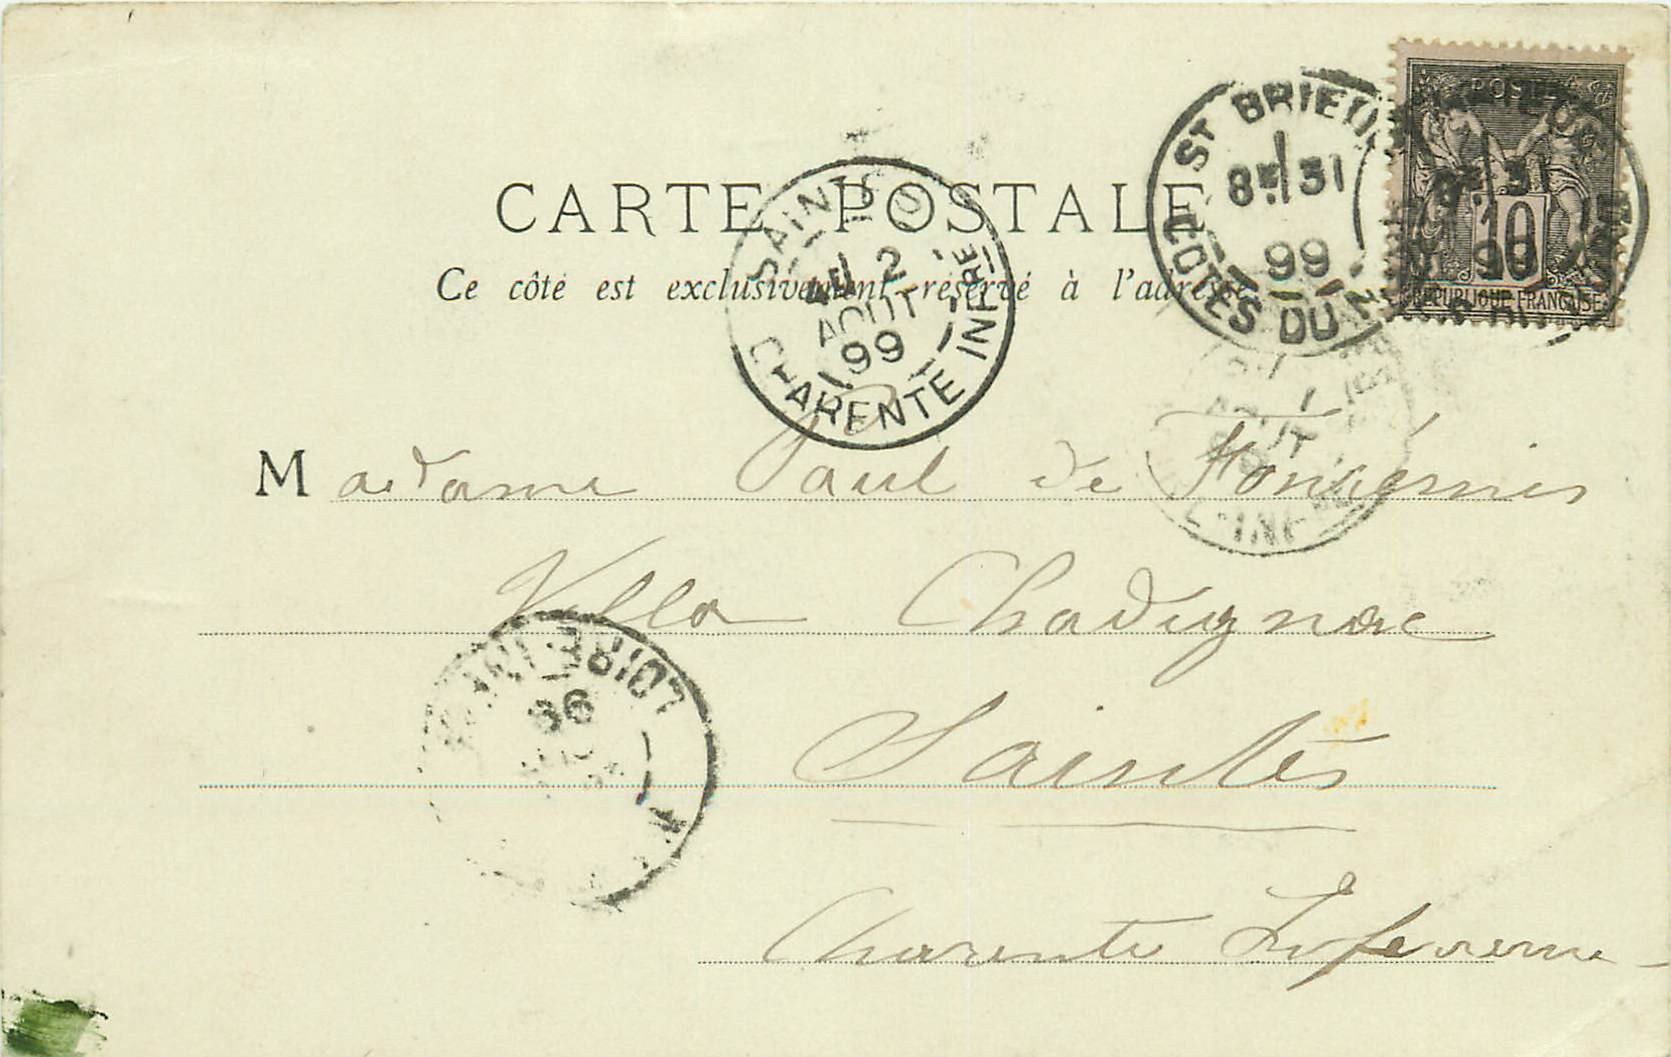 CARTE POSTALE
Ce côté est exclusivement réservé à l'adresse
POSTE
10
RÉPUBLIQUE FRANÇAISE
ST BRIEUC
8E 31
99
CÔTES DU N
SAINTES
2
AOUT
99
CHARENTE INFRE
1
AOUT
Madame Paul de Fonrémis
Villa Chadignac
Saintes
Charente Inférieure
LOIRE-INF
99